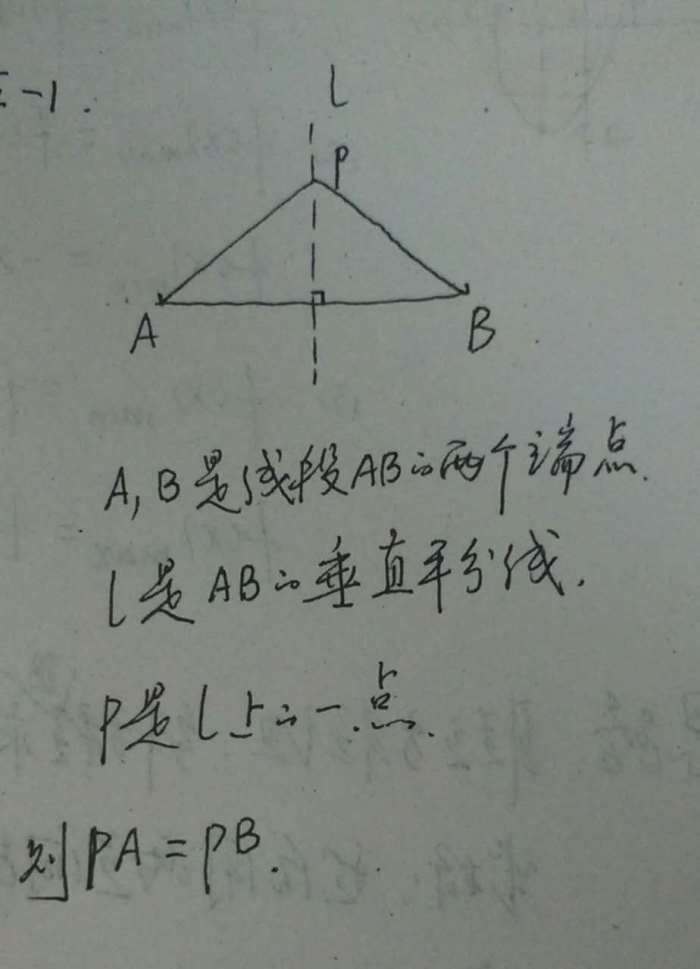 -1.
l
P
A
B
A,B是线段AB的两个端点.
l是AB的垂直平分线.
P是l上的一点.
则PA=PB.